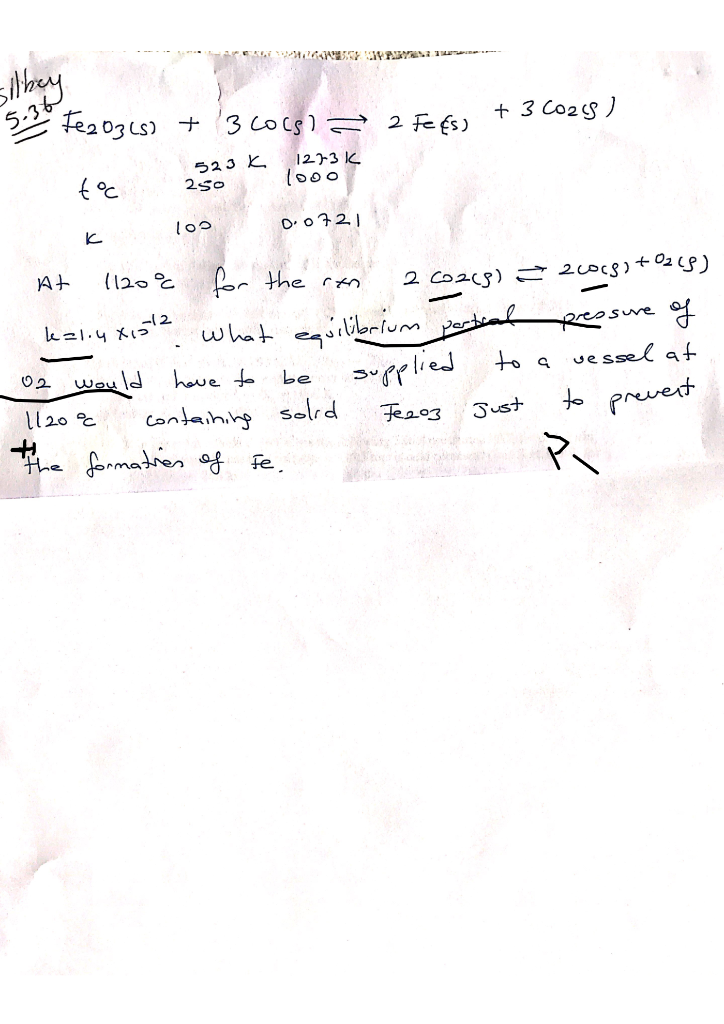 silbey
5.36 Fe2O3(s) + 3CO(g) ⇌ 2 Fe(s) + 3 CO2(g)
523 K 1273 K
t °C 250 1000
K 100 0.0721
At 1120 °C for the rxn 2 CO2(g) ⇌ 2CO(g) + O2(g)
k=1.4 x10-12. What equilibrium partial pressure of
O2 would have to be supplied to a vessel at
1120 °C containing solid Fe2O3 just to prevent
the formation of Fe.